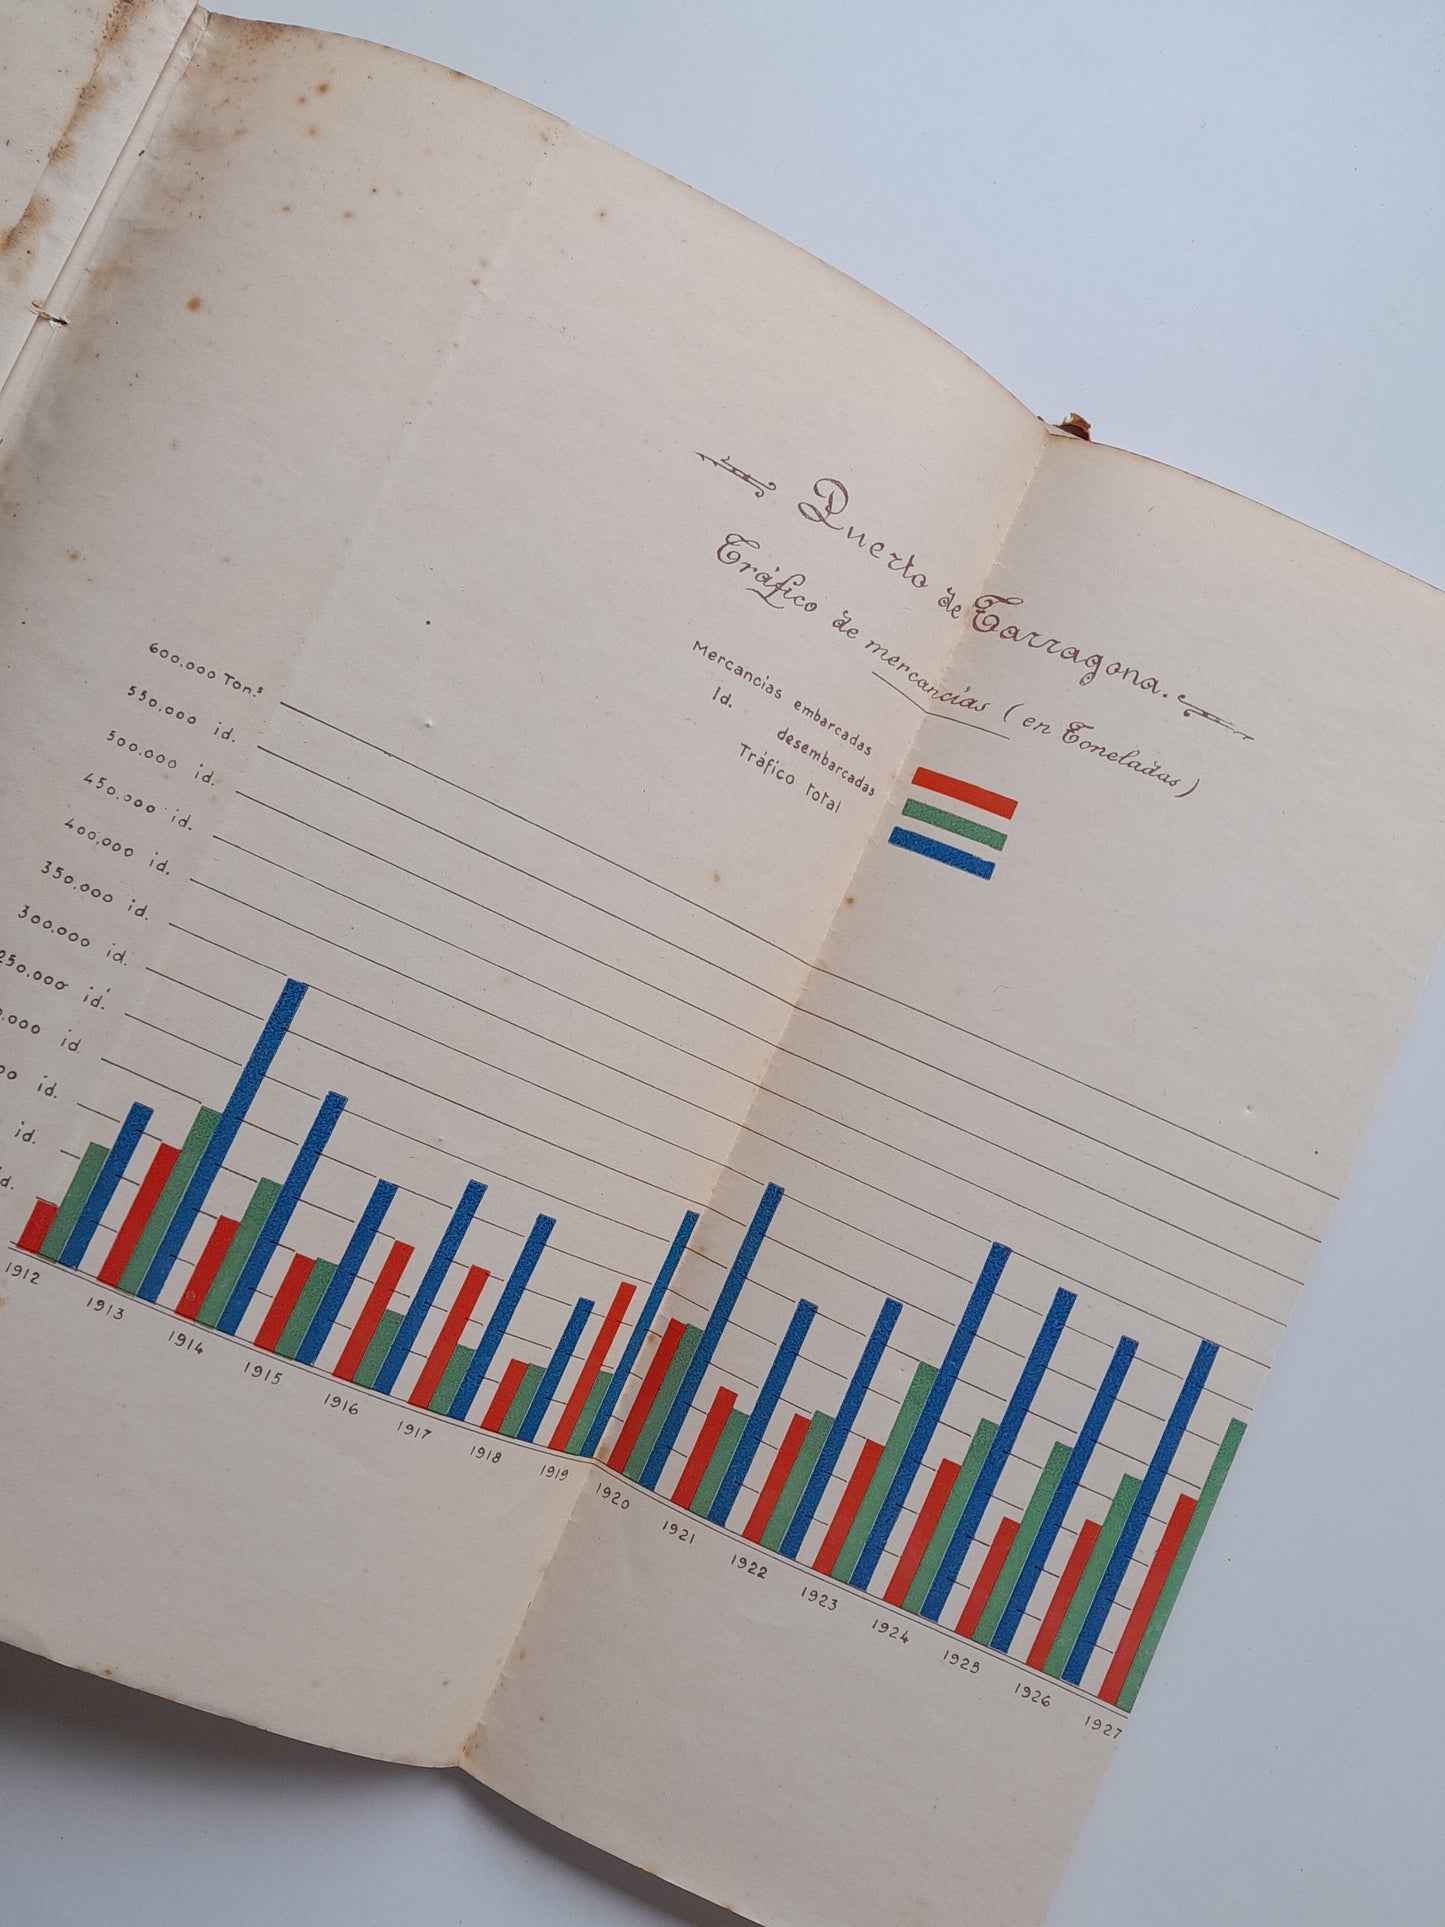 Puerto de Tarragona.
Tráfico de mercancías (en Toneladas)
Mercancias embarcadas
Id. desembarcadas
Tráfico total
600.000 Ton.s
550,000 id.
500.000 id.
450.000 id.
400,000 id.
350,000 id.
300.000 id.
250,000 id.
.000 id.
00 id.
id.
id.
1912 1913 1914 1915 1916 1917 1918 1919 1920 1921 1922 1923 1924 1925 1926 1927